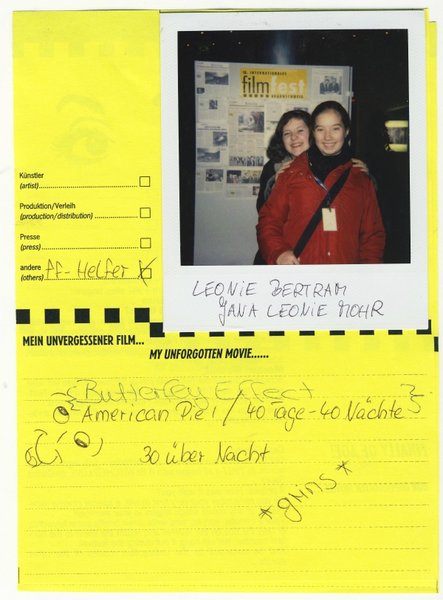 Künstler
(artist)
Produktion/Verleih
(production/distribution)
Presse
(press)
andere
(others) ff-Helfer
18. INTERNATIONALES
filmfest
BRAUNSCHWEIG
LEONIE BERTRAM
JANA LEONIE MOHR
MEIN UNVERGESSENER FILM...
MY UNFORGOTTEN MOVIE......
Butterfly Effect
American Pie 1 / 40 Tage - 40 Nächte
30 über Nacht
*grins*